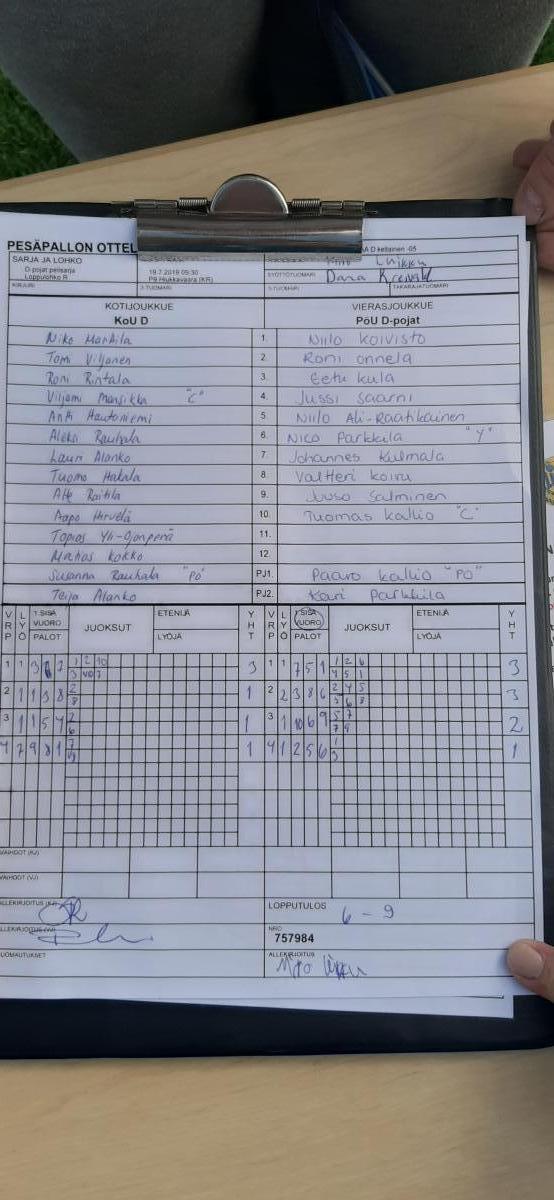 PESÄPALLON OTTEL
AA D kettainen -05
SARJA JA LOHKO
D-pojat pelisarja
Loppulohko R
19.7.2019 09:30
P9 Hiukkavaara (KR)
SYÖTTÖTUOMARI
Dana
KIRJURI
2-TUOMARI
3-TUOMARI
TAKARAJATUOMARI
KOTIJOUKKUE VIERASJOUKKUE
KoU D PöU D-pojat
Niko Markila 1. Niilo Koivisto
Tomi Viljanen 2. Roni Onnela
Roni Rintala 3. Eetu Kula
Viljami Mansikka "C" 4. Jussi Saarni
Antti Hautoniemi 5. Niilo Ali-Raatikainen
Aleksi Rauhala 6. Nico Parkkila "Y"
Lauri Alanko 7. Johannes Kulmala
Tuomo Hakala 8. Valtteri Koivu
Atte Raitila 9. Juuso Salminen
Aapo Hirvelä 10. Tuomas Kallio "C"
Topias 11.
Matias Kokko 12.
Susanna Rauhala "PO" PJ1. Paavo Kallio "PO"
Teija Alanko PJ2. Kari Parkkila
VRP LYÖ 1.SISÄ VUORO PALOT JUOKSUT ETENIJÄ LYÖJÄ YHT VRP LYÖ 1.SISÄ VUORO PALOT JUOKSUT ETENIJÄ LYÖJÄ YHT
1 1 3 7 1 2 10 3 1 1 7 5 9 1 2 6 3
2 1 1 3 8 2 8 1 2 2 3 8 6 2 4 5 3
3 1 1 5 4 2 6 1 3 1 10 6 9 5 7 2
4 7 9 8 1 7 1 4 1 2 5 6 1 3 1
VAIHDOT (KJ)
VAIHDOT (VJ)
ALLEKIRJOITUS (KJ)
LOPPUTULOS 6 - 9
ALLEKIRJOITUS (VJ)
NRO
757984
HUOMAUTUKSET
ALLEKIRJOITUS